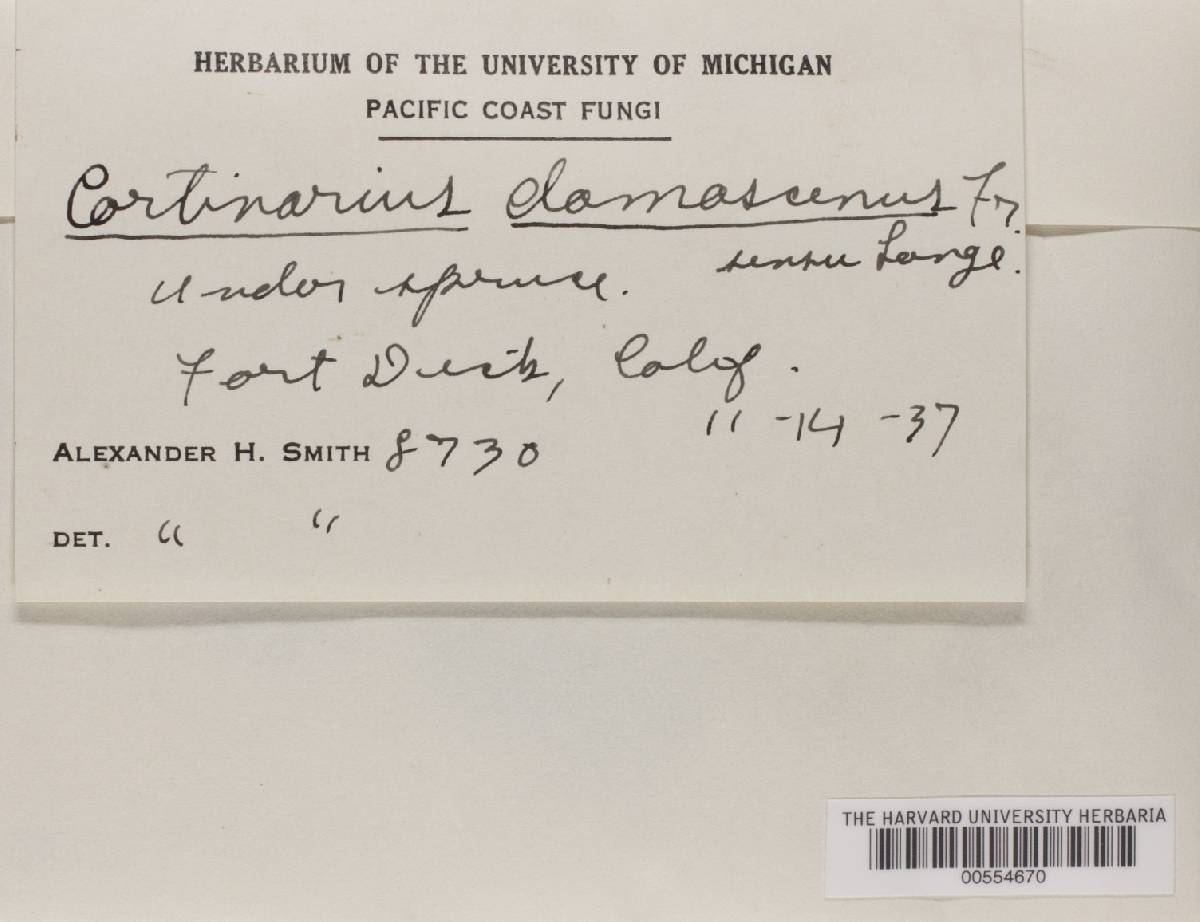 HERBARIUM OF THE UNIVERSITY OF MICHIGAN
PACIFIC COAST FUNGI
Cortinarius damascenus Fr.
sensu Lange.
under spruce.
Fort Dick, Calif.
11-14-37
ALEXANDER H. SMITH 8730
DET. " "
THE HARVARD UNIVERSITY HERBARIA
00554670